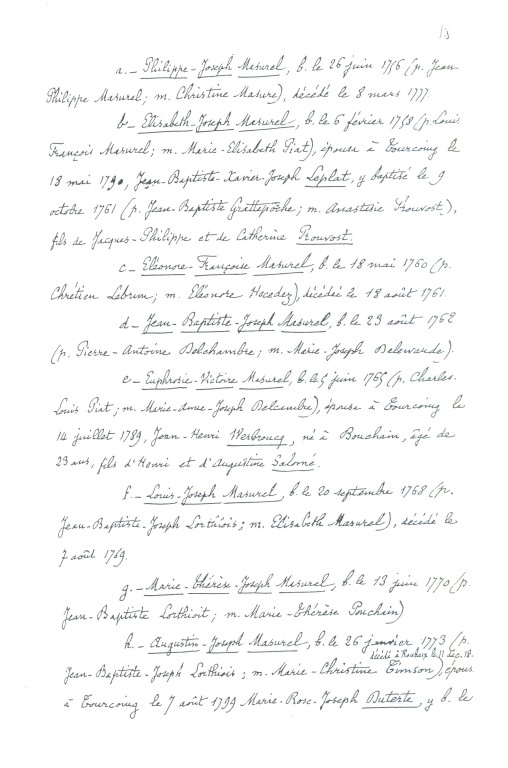 18
a. _ Philippe-Joseph Masurel, b. le 26 juin 1756 (p. Jean
Philippe Masurel; m. Christine Masure), décédé le 8 mars 1777
b _ Elisabeth-Joseph Masurel, b. le 6 février 1758 (p. Louis
François Masurel; m. Marie-Elisabeth Piat), épousa à Tourcoing le
18 mai 1790, Jean-Baptiste-Xavier-Joseph Leplat, y baptisé le 9
octobre 1761 (p. Jean-Baptiste Grattepèche; m. Anastasie Prouvost),
fils de Jacques-Philippe et de Catherine Prouvost.
c _ Eléonore-Françoise Masurel, b. le 18 mai 1760 (p.
Chrétien Lebrun; m. Eléonore Hocedez), décédé le 18 août 1761.
d _ Jean-Baptiste-Joseph Masurel, b. le 23 août 1762
(p. Pierre-Antoine Delchambre; m. Marie-Joseph Delewarde).
e _ Euphrosie-Victoire Masurel, b. le 5 juin 1765 (p. Charles.
Louis Piat; m. Marie-Anne-Joseph Delcambre), épousa à Tourcoing le
14 juillet 1789, Jean-Henri Werbroucq, né à Bouchain, âgé de
23 ans, fils d'Henri et d'Augustine Salomé.
f _ Louis-Joseph Masurel, b. le 20 septembre 1768 (p.
Jean-Baptiste-Joseph Lorthiois; m. Elisabeth Masurel), décédé le
7 août 1769.
g. _ Marie-Thérèse-Joseph Masurel, b. le 13 juin 1770 (p.
Jean-Baptiste Lorthioit; m. Marie-Thérèse Pouchain)
h. _ Augustin-Joseph Masurel, b. le 26 janvier 1773 (p.
décédé à Roubaix le 11 déc. 18.
Jean-Baptiste-Joseph Lorthiois; m. Marie-Christine Timson), épous
à Tourcoing le 7 août 1799 Marie-Rose-Joseph Duterte, y b. le